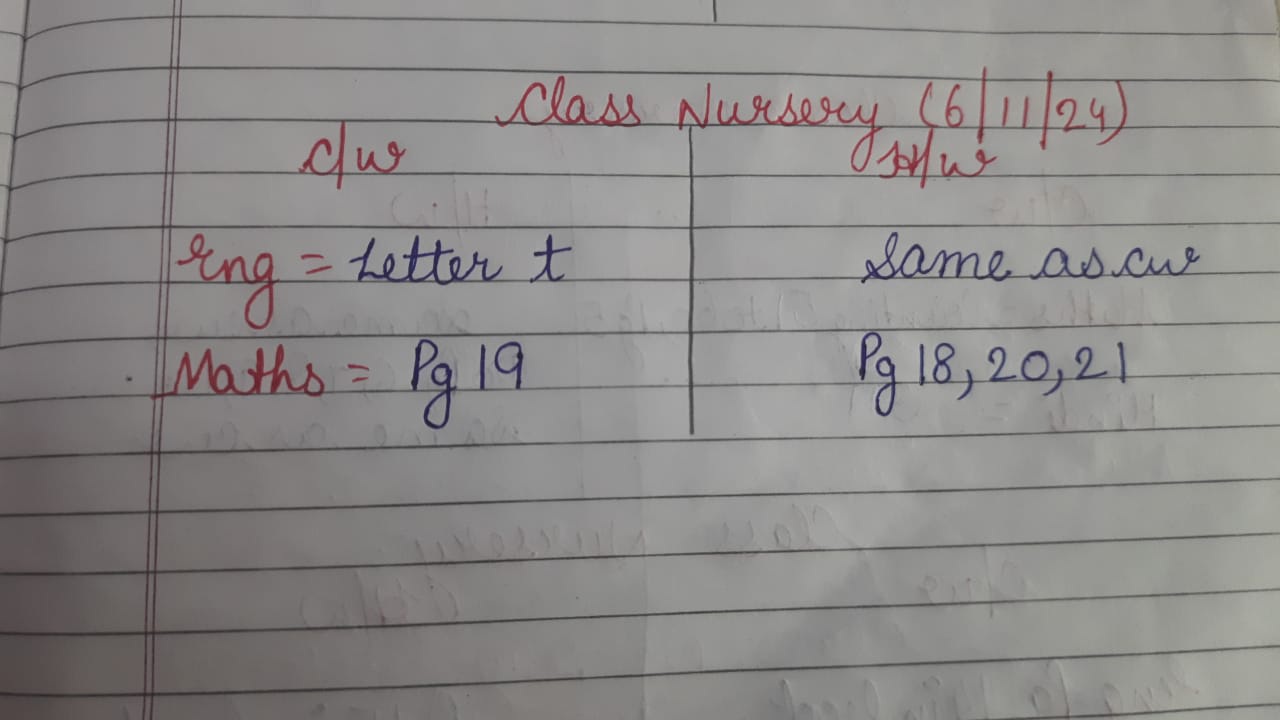 Class Nursery (6/11/24)
C/w H/w
Eng = Letter t Same as cw
Maths = Pg 19 Pg 18, 20, 21